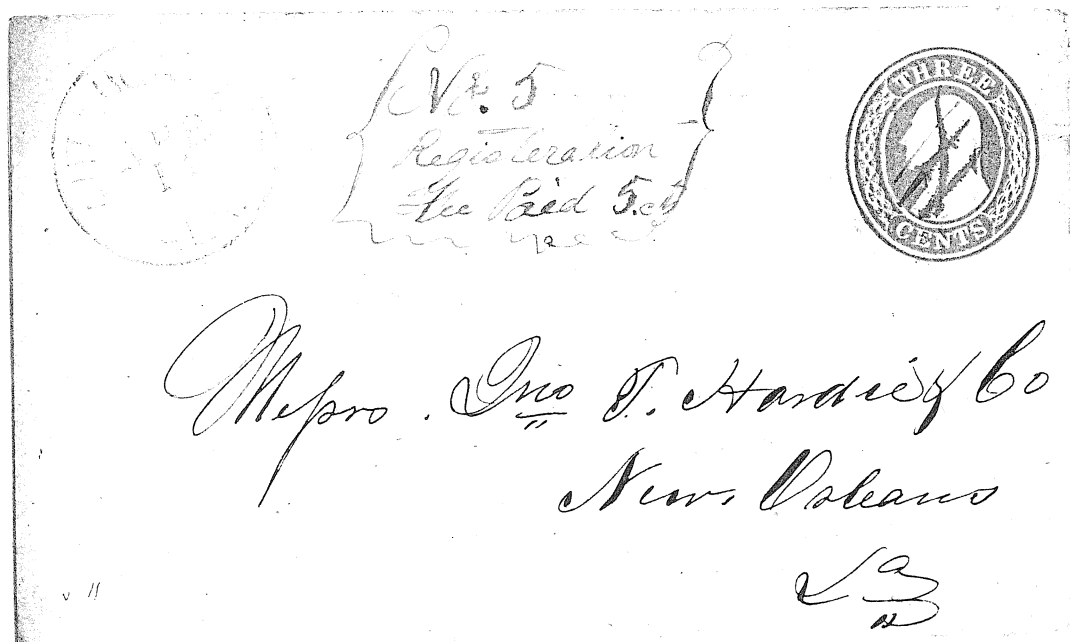 No. 5
Registeration
Fee Paid 5.ct
THREE
CENTS
Messrs. Jno T. Hardie & Co
New Orleans
La